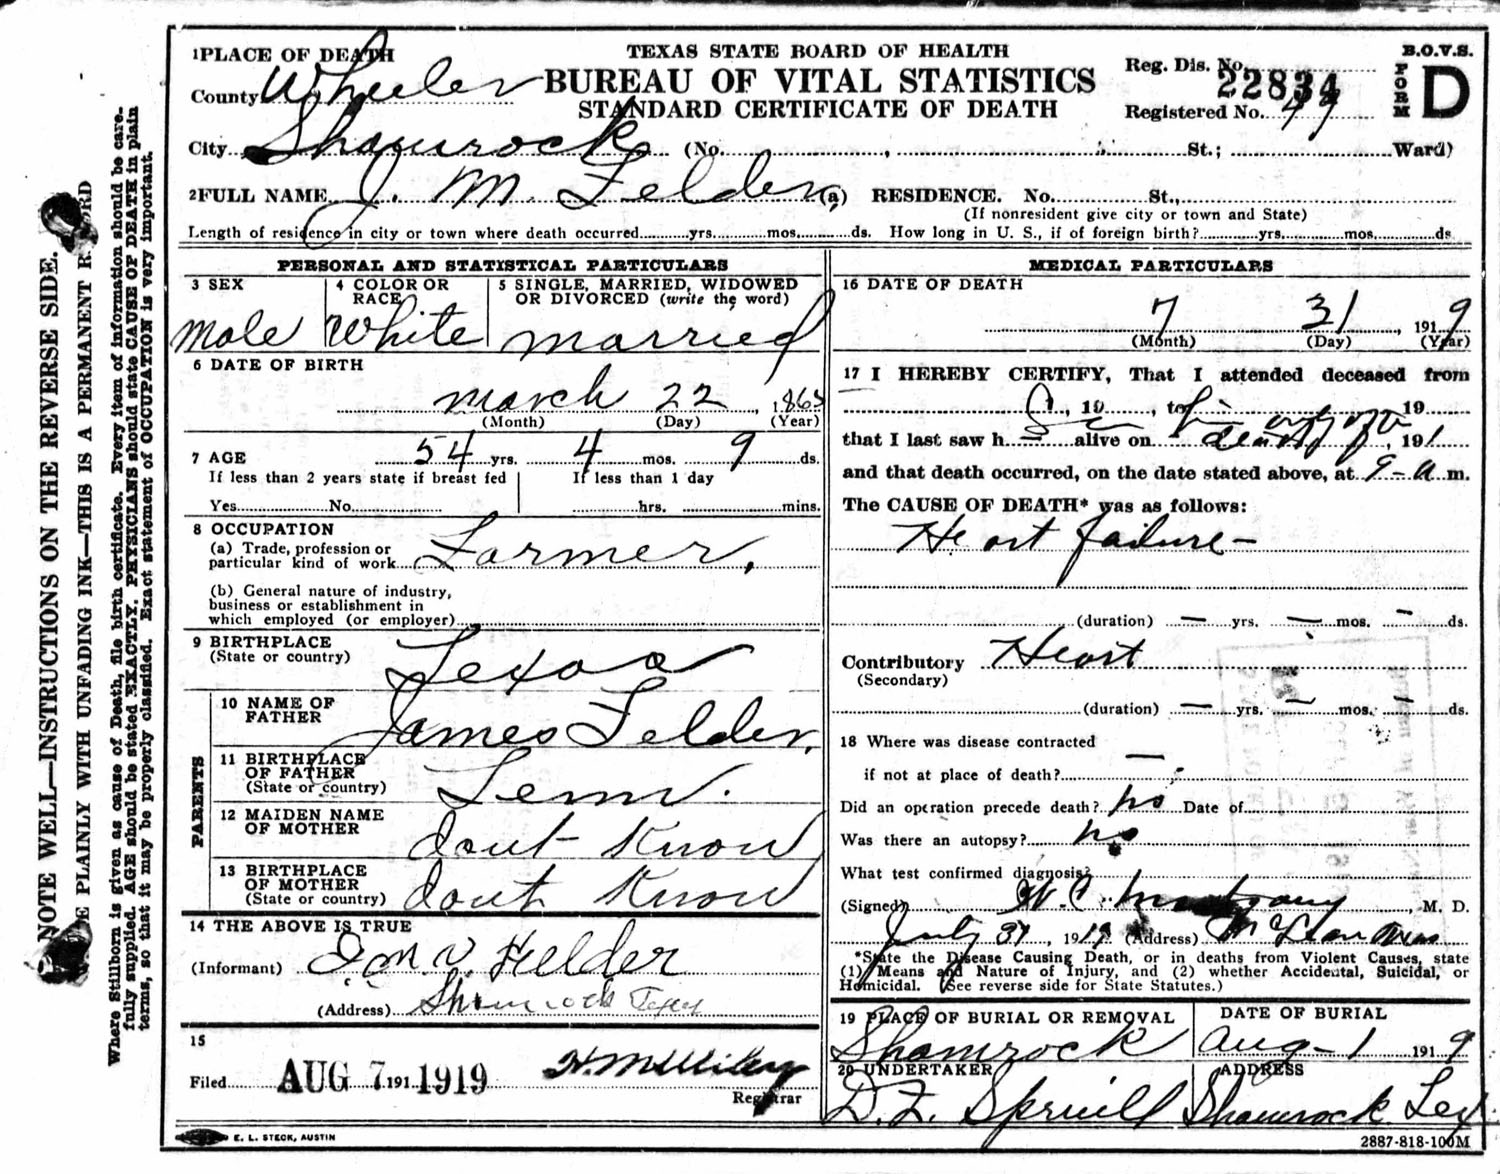 1 PLACE OF DEATH
TEXAS STATE BOARD OF HEALTH
B.O.V.S.
County Wheeler
BUREAU OF VITAL STATISTICS
Reg. Dis. No. 22834
FORM D
STANDARD CERTIFICATE OF DEATH
Registered No. 49
City Shamrock (No. , St.; Ward)
2 FULL NAME J. M. Felder, (a) RESIDENCE. No. St.,
(If nonresident give city or town and State)
Length of residence in city or town where death occurred yrs. mos. ds. How long in U. S., if of foreign birth? yrs. mos. ds
PERSONAL AND STATISTICAL PARTICULARS
3 SEX
4 COLOR OR RACE
5 SINGLE, MARRIED, WIDOWED
OR DIVORCED (write the word)
Male White married
6 DATE OF BIRTH
March 22, 186
(Month) (Day) (Year)
7 AGE 54 yrs. 4 mos. 9 ds.
If less than 2 years state if breast fed If less than 1 day
Yes No hrs. mins.
8 OCCUPATION
(a) Trade, profession or
particular kind of work Farmer,
(b) General nature of industry,
business or establishment in
which employed (or employer)
9 BIRTHPLACE
(State or country) Texas
PARENTS
10 NAME OF
FATHER James Felder,
11 BIRTHPLACE
OF FATHER
(State or country) Tenn.
12 MAIDEN NAME
OF MOTHER dont Know
13 BIRTHPLACE
OF MOTHER
(State or country) dont Know
14 THE ABOVE IS TRUE
(Informant) Felder
(Address) Shamrock Texas
15
Filed AUG 7 191 1919
Registrar
MEDICAL PARTICULARS
16 DATE OF DEATH
7 31, 1919
(Month) (Day) (Year)
17 I HEREBY CERTIFY, That I attended deceased from
, 19 , to 19
that I last saw h alive on , 191
and that death occurred, on the date stated above, at 9-a m.
The CAUSE OF DEATH* was as follows:
Heart failure-
(duration) — yrs. — mos. — ds.
Contributory Heart
(Secondary)
(duration) — yrs. — mos. — ds.
18 Where was disease contracted
if not at place of death? —
Did an operation precede death? no Date of
Was there an autopsy? no
What test confirmed diagnosis?
(Signed) W. C. , M. D.
July 31, 1919 (Address) McLean
*State the Disease Causing Death, or in deaths from Violent Causes, state
(1) Means and Nature of Injury, and (2) whether Accidental, Suicidal, or
Homicidal. (See reverse side for State Statutes.)
19 PLACE OF BURIAL OR REMOVAL DATE OF BURIAL
Shamrock Aug-1 1919
20 UNDERTAKER ADDRESS
D. F. Spruill Shamrock Tex.
E. L. STECK, AUSTIN
2887-818-100M
NOTE WELL—INSTRUCTIONS ON THE REVERSE SIDE.
PLAINLY WITH UNFADING INK—THIS IS A PERMANENT RECORD
Where Stillborn is given as cause of Death, file birth certificate. Every item of information should be care-
fully supplied. AGE should be stated EXACTLY. PHYSICIANS should state CAUSE OF DEATH in plain
terms, so that it may be properly classified. Exact statement of OCCUPATION is very important.